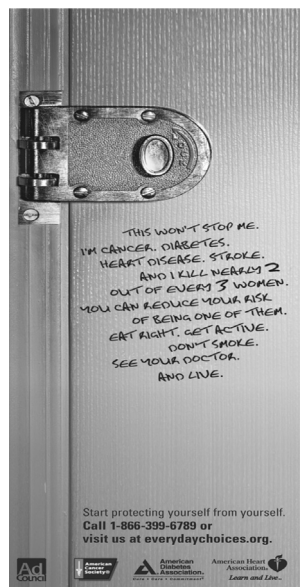 THIS WON'T STOP ME.
I'M CANCER. DIABETES.
HEART DISEASE. STROKE.
AND I KILL NEARLY 2
OUT OF EVERY 3 WOMEN.
YOU CAN REDUCE YOUR RISK
OF BEING ONE OF THEM.
EAT RIGHT. GET ACTIVE.
DON'T SMOKE.
SEE YOUR DOCTOR.
AND LIVE.
Start protecting yourself from yourself.
Call 1-866-399-6789 or
visit us at everydaychoices.org.
Ad
Council
American
Cancer
Society®
American
Diabetes
Association.
Cure • Care • Commitment
American Heart
Association.
Learn and Live.